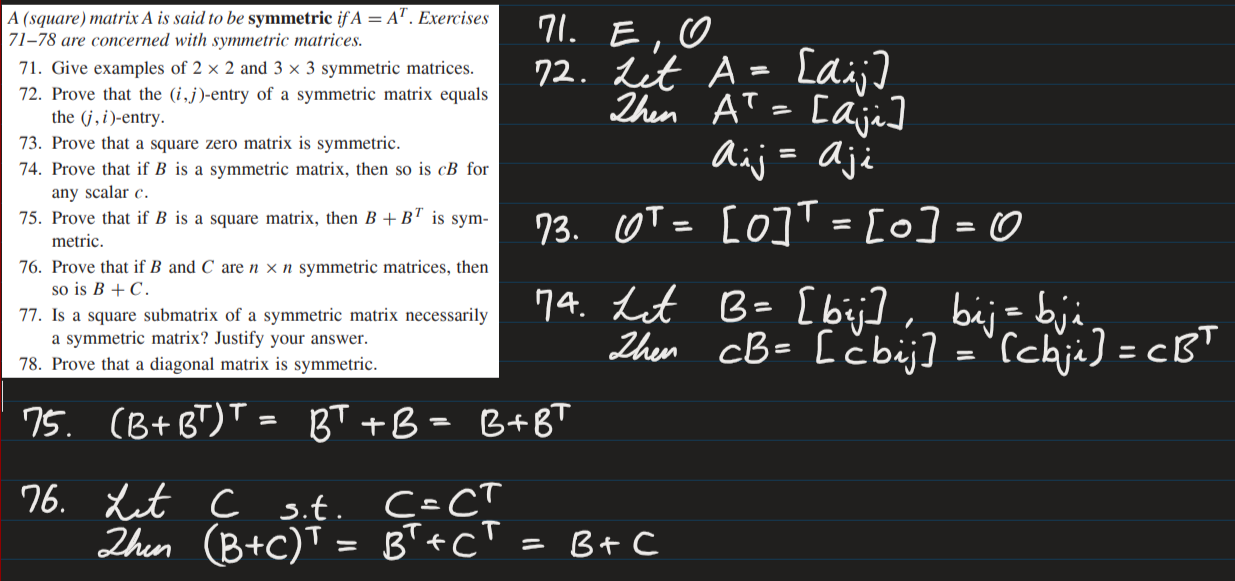 A (square) matrix A is said to be symmetric if A = Aᵀ. Exercises
71–78 are concerned with symmetric matrices.
71. Give examples of 2 × 2 and 3 × 3 symmetric matrices.
72. Prove that the (i,j)-entry of a symmetric matrix equals
the (j,i)-entry.
73. Prove that a square zero matrix is symmetric.
74. Prove that if B is a symmetric matrix, then so is cB for
any scalar c.
75. Prove that if B is a square matrix, then B + Bᵀ is sym-
metric.
76. Prove that if B and C are n × n symmetric matrices, then
so is B + C.
77. Is a square submatrix of a symmetric matrix necessarily
a symmetric matrix? Justify your answer.
78. Prove that a diagonal matrix is symmetric.
71. E, O
72. Let A = [aij]
Then Aᵀ = [aji]
aij = aji
73. Oᵀ = [0]ᵀ = [0] = O
74. Let B = [bij], bij = bji
Then cB = [cbij] = [cbji] = cBᵀ
75. (B+Bᵀ)ᵀ = Bᵀ+B = B+Bᵀ
76. Let C s.t. C=Cᵀ
Then (B+C)ᵀ = Bᵀ+Cᵀ = B+C